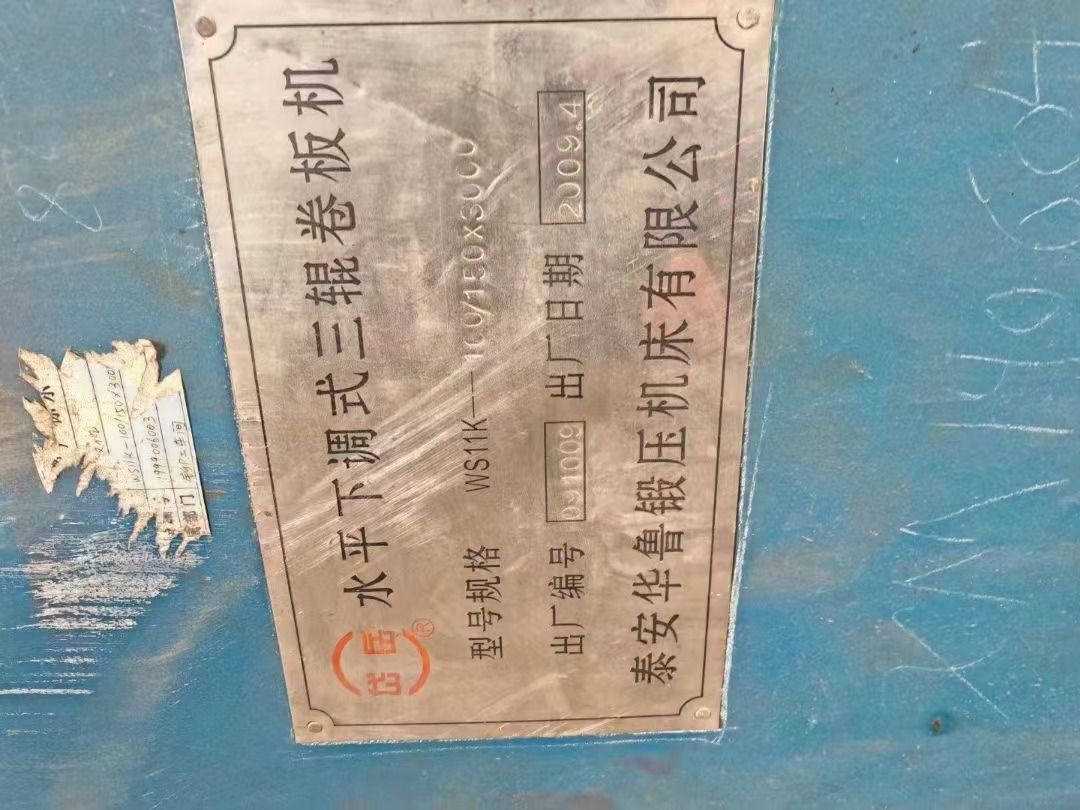 水平下调式三辊卷板机
®
型号规格 WS11K——100/150X3000
出厂编号 091009 出厂日期 2009.4
泰安华鲁锻压机床有限公司
WS11K-100/150x300
999006003
部门
8